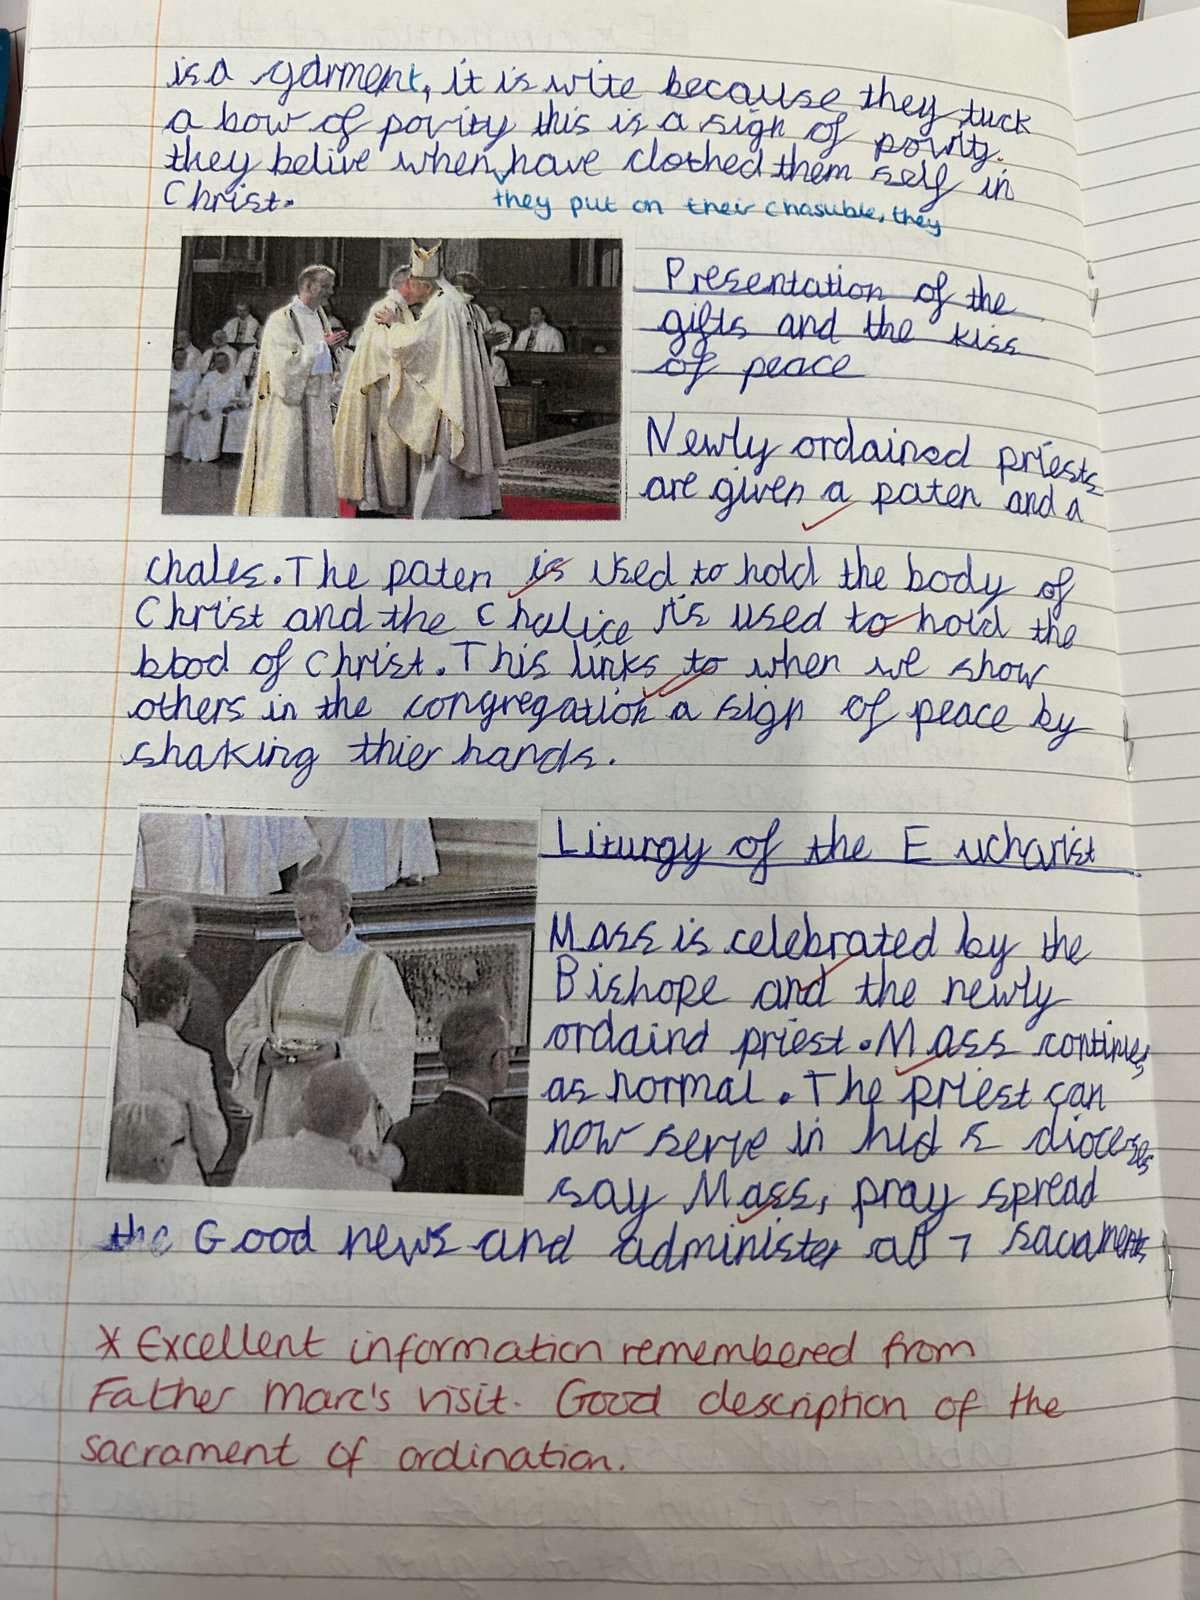 is a garment, it is wite because they tuck
a bow of povity this is a sign of povity.
they belive when have clothed them self in
Christ.
they put on their chasuble, they
Presentation of the
gifts and the kiss
of peace
Newly ordained priests
are given a paten and a
chales. The paten is used to hold the body of
Christ and the Chalice is used to hold the
blood of Christ. This links to when we show
others in the congregation a sign of peace by
shaking thier hands.
Liturgy of the Eucharist
Mass is celebrated by the
Bishope and the newly
ordaind priest. Mass continues
as normal. The priest can
now serve in diocese,
say Mass, pray spread
the Good news and administer all 7 sacraments
* Excellent information remembered from
Father Marc's visit. Good description of the
sacrament of ordination.